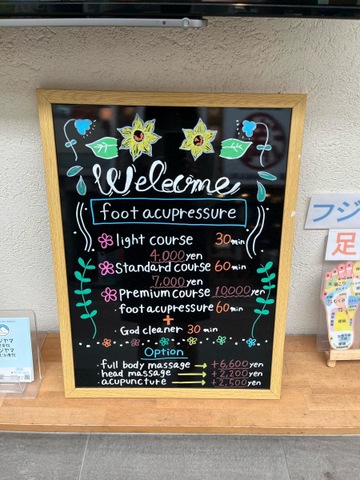 Welcome
foot acupressure
light course 30min
4,000yen
Standard course 60min
7,000yen
Premium course 10000yen
foot acupressure 60min
+
God cleaner 30min
Option
full body massage → +6,600yen
head massage → +2,200yen
acupuncture → +2,500yen
フジ
足